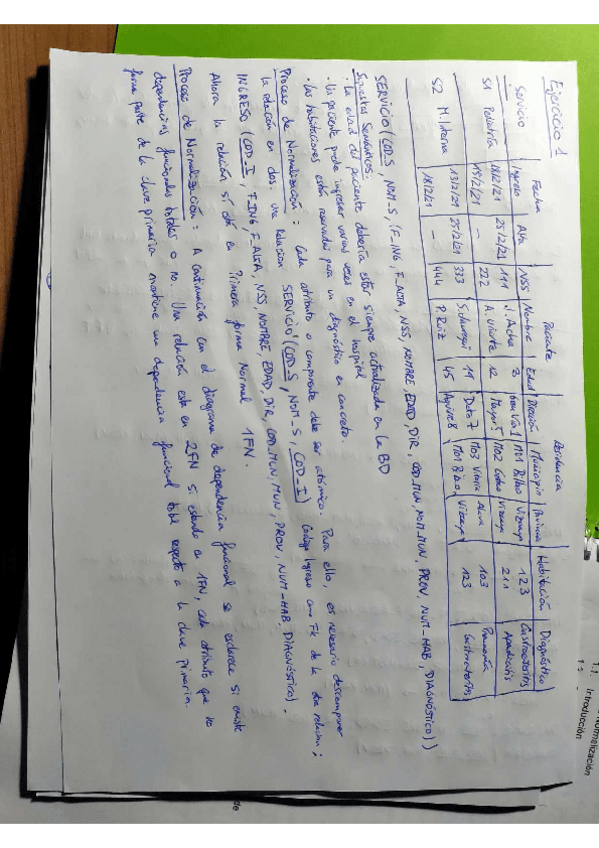 Ejercicio 1
Fecha Paciente Residencia
Servicio Ingreso Alta NSS Nombre Edad Dirección Municipio Provincia Habitación Diagnóstico
18/2/21 25/2/21 111 J. Acha 3 Gran Vía 1 M01 Bilbao Vizcaya 123 Gastroenteritis
S1 Pediatría 19/2/21 — 222 A. 12 Mayor 5 M02 Vizcaya 211 Apendicitis
13/2/21 25/2/21 333 11 Dato 7 M03 Vitoria Alava 103 Pneumonía
S2 M. Interna 18/2/21 — 444 P. Ruiz 45 Aguirre 8 M01 Bilbao Vizcaya 123 Gastroenteritis
SERVICIO (COD_S, NOM_S, (F_ING, F_ALTA, NSS, NOMBRE, EDAD, DIR, COD_MUN, NOM_MUN, PROV, NUM_HAB, DIAGNÓSTICO))
Supuestos Semánticos:
· La edad del paciente debería estar siempre actualizada en la BD
· Un paciente puede ingresar varias veces en el hospital
· Las habitaciones están reservadas para un diagnóstico en concreto.
Proceso de Normalización: Cada atributo o componente debe ser atómico. Para ello, es necesario descomponer
la relación en dos. Una relación SERVICIO (COD_S, NOM_S, COD_I) Código Ingreso como FK de la otra relación;
INGRESO (COD_I, F_ING, F_ALTA, NSS, NOMBRE, EDAD, DIR, COD_MUN, MUN, PROV, NUM-HAB, DIAGNÓSTICO).
Ahora la relación sí está en Primera forma Normal 1FN.
Proceso de Normalización: A continuación con el diagrama de dependencia funcional se esclarece si existe
dependencias funcionales totales o no. Una relación está en 2FN si estando en 1FN, cada atributo que no
forma parte de la clave primaria mantiene una dependencia funcional total respecto a la clave primaria.
1.1. Normalización
1.2 Introducción
de